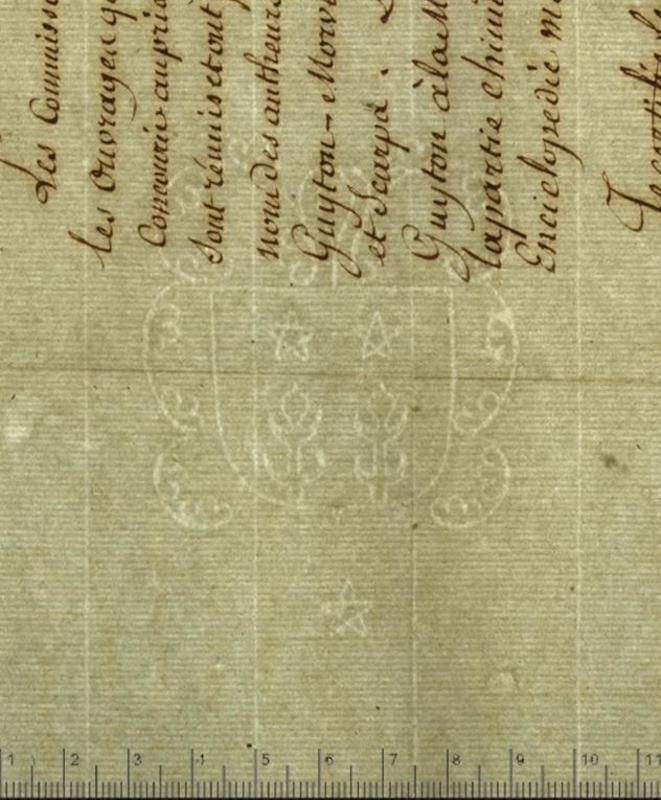 Les Commiss
les Ouvrages q
Concourir au prix
Sont réunis et ont
nom des autheurs
Guyton-Morv
et Scarpa.
Guyton à la M
la partie chimi
Enciclopedie m
Je certifie
1 2 3 4 5 6 7 8 9 10 11